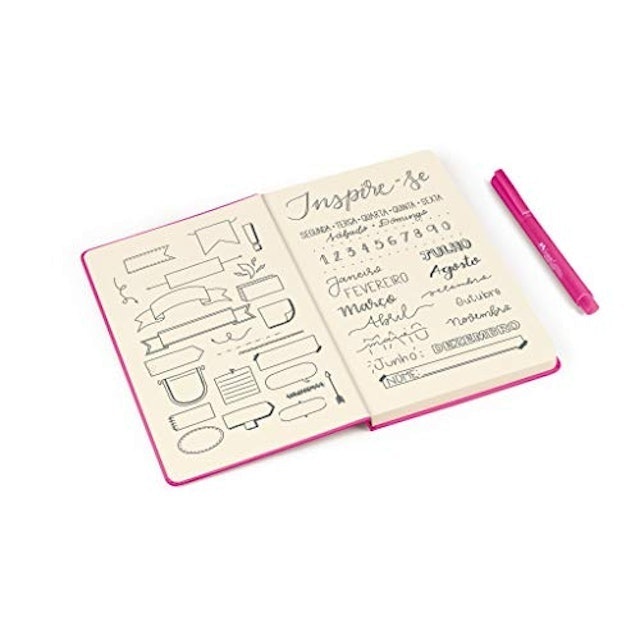 Inspire-se
SEGUNDA • TERÇA • QUARTA • QUINTA • SEXTA
Sábado • Domingo
1 2 3 4 5 6 7 8 9 0
Janeiro
FEVEREIRO
Março
Abril
MAIO
Junho:
JULHO
Agosto
setembro
Outubro
Novembro
DEZEMBRO
NOME: